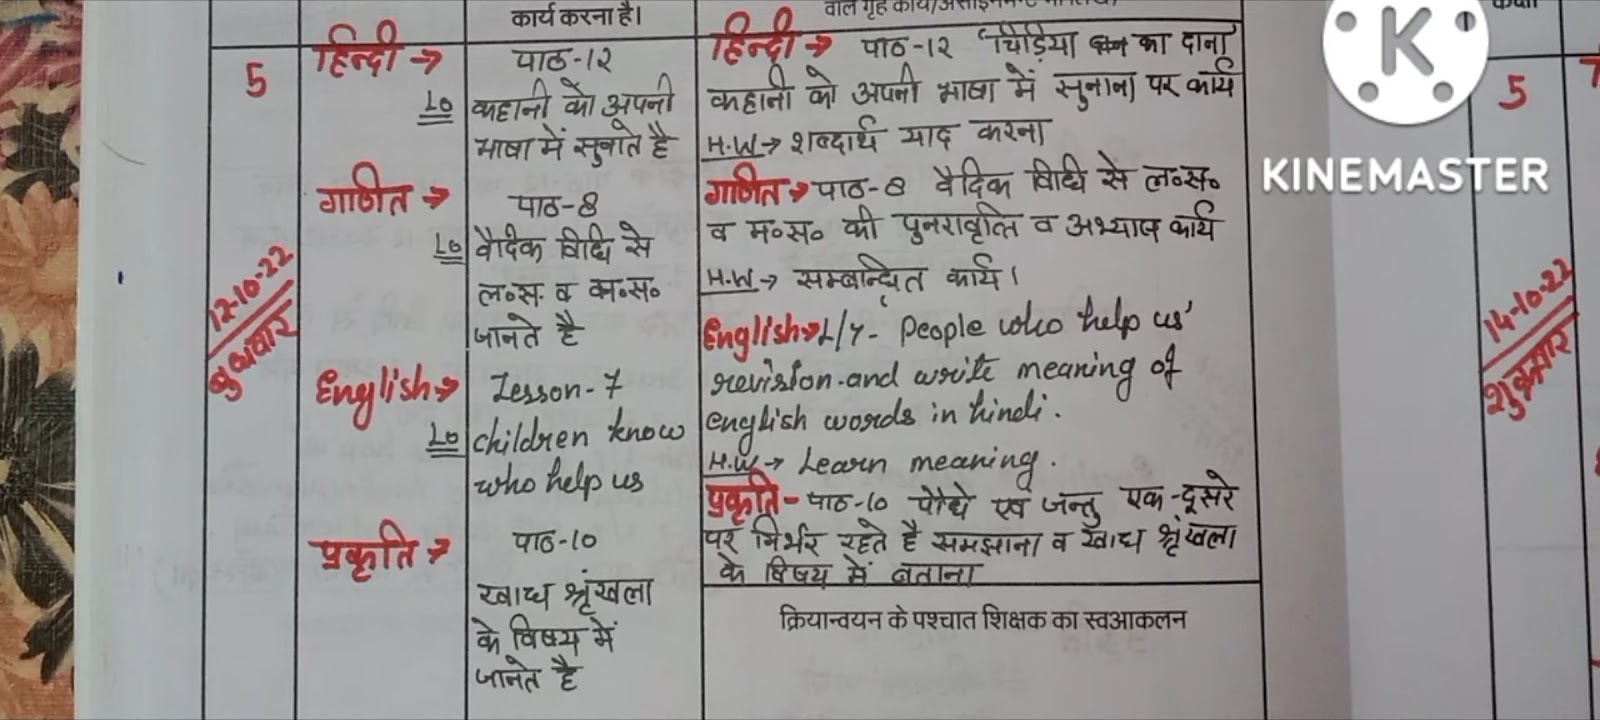 कार्य करना है।
5
12-10-22
बुधवार
हिन्दी →
पाठ-१२
LO कहानी को अपनी
भाषा में सुनाते है
गणित →
पाठ-8
LO वैदिक विधि से
ल०स० व म०स०
जानते है
English →
Lesson-7
LO children know
who help us
प्रकृति →
पाठ-१०
खाद्य श्रृंखला
के विषय में
जानते है
हिन्दी → पाठ-१२ 'चिड़िया का दाना'
कहानी को अपनी भाषा में सुनाना पर कार्य
H.W → शब्दार्थ याद करना
गणित → पाठ-8 वैदिक विधि से ल०स०
व म०स० की पुनरावृत्ति व अभ्यास कार्य
H.W → सम्बन्धित कार्य।
English → L/7- 'People who help us'
revision and write meaning of
english words in hindi.
H.W → Learn meaning.
प्रकृति - पाठ-१० पौधे एवं जन्तु एक-दूसरे
पर निर्भर रहते है समझाना व खाद्य श्रृंखला
के विषय में बताना
क्रियान्वयन के पश्चात शिक्षक का स्वआकलन
KINEMASTER
5
14-10-22
शुक्रवार